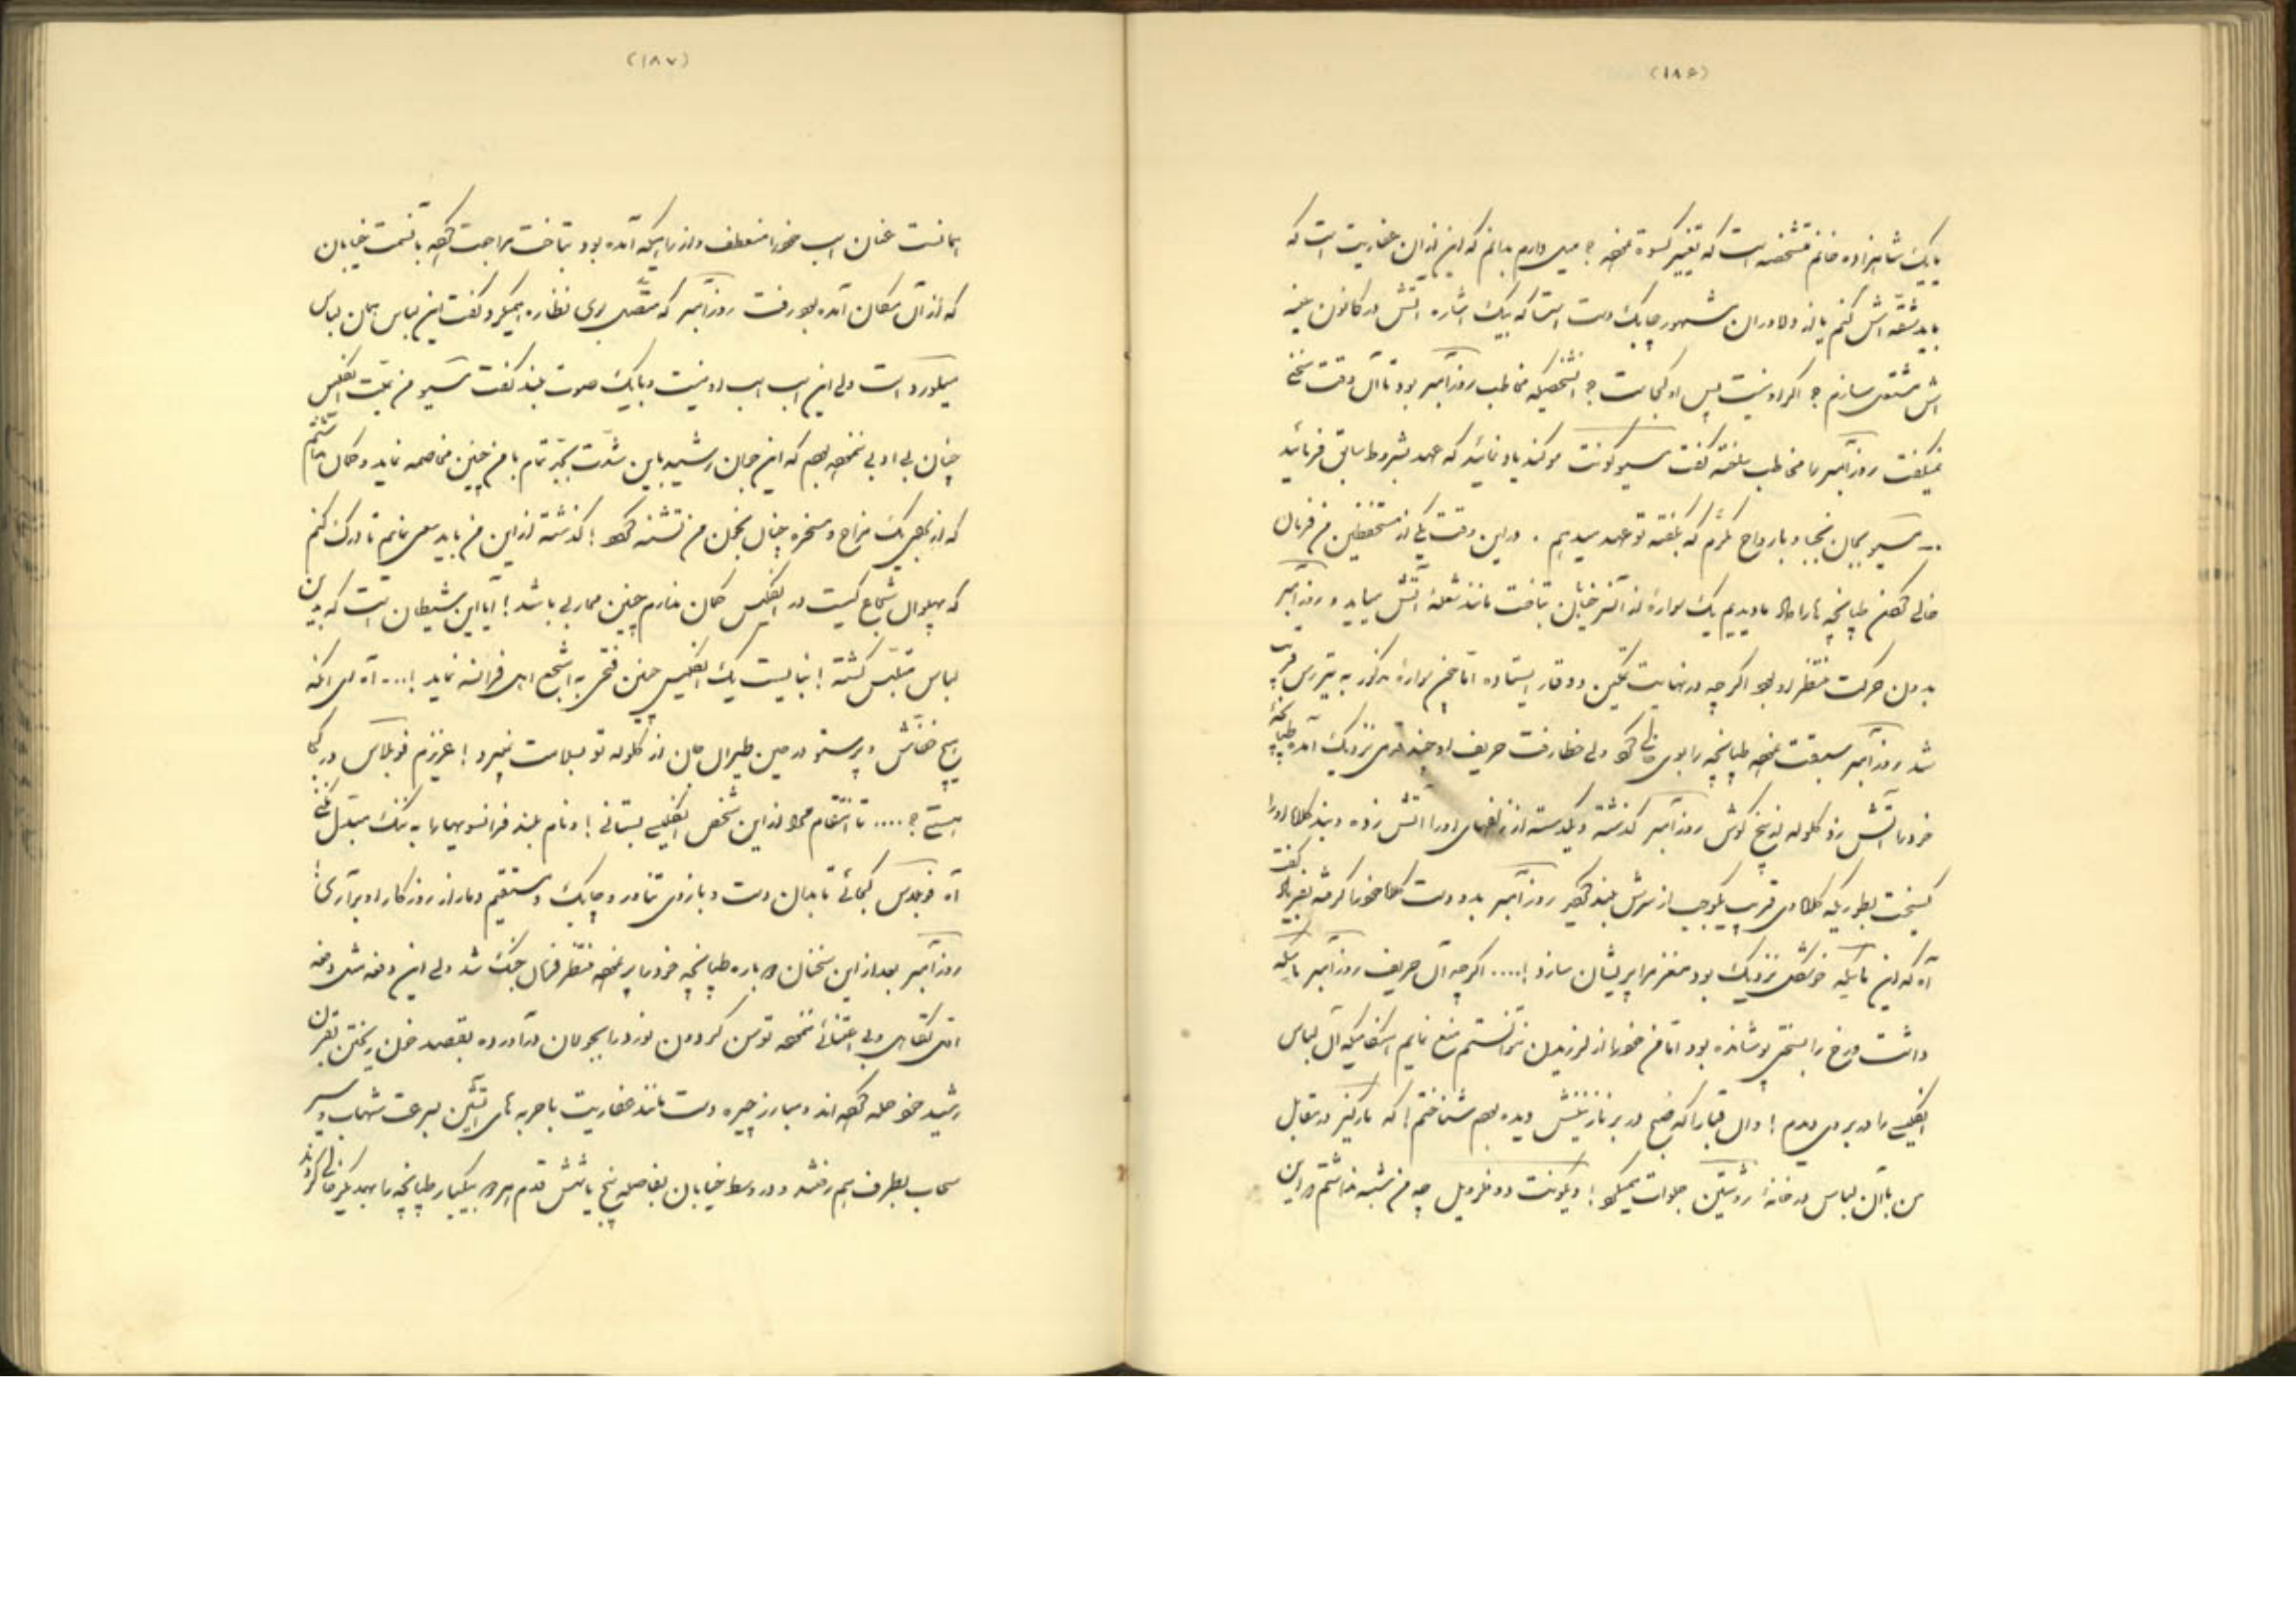 (۱۸۶)
یا یک شاهزاده خانم متشخصه است که تغییر کسوة نموده ؟ میل دارم بدانم که این از آن عفاریت است که
باید شقه اش کنم یا از دلاوران مشهور چابک دست است که بیک اشاره آتش در کانون
اش مشتعل سازم ؟ اگر او نیست پس او کجاست ؟ آنشخصیکه مخاطب روزآمبر بود تا آن وقت سخنی
نمیگفت روزآمبر را مخاطب ساخته گفت مسیو کونت سوگند یاد نمائید که عهد بشروط سابق فرمائید
... مسیو بجان نجبا و بارواح مکرم که بگفته تو عهد میدهم . در این وقت یکی از مستحفظین من فرمان
خالی کردن طپانچه ها را داد ما دیدیم یک سواره از آخر خیابان بتاخت مانند شعلۀ آتش میاید و روزآمبر
بدون حرکت منتظر او بود اگر چه در نهایت تمکین و وقار ایستاده اما چون سوارۀ مذکور به تیررس قریب
شد روزآمبر سبقت نموده طپانچه را بوی خالی کرد ولی خطا رفت حریف او چند قدمی نزدیک آمده طپانچۀ
خود را آتش زد گلوله از بیخ گوش روزآمبر گذشته و یکدسته از زلفهای او را آتش زده و بند کلاه او را
گسیخت بطوریکه کلاه وی قریب یکوجب از سرش بلند گردید روزآمبر بدو دست کلاه خود را گرفته بفریاد گفت
آه که این گلوله خیلی نزدیک بود مغز مرا پریشان سازد !.... اگر چه آن حریف روزآمبر ماسکه
داشت و رخ را بسختی پوشانده بود اما من خود را از لرزیدن نتوانستم منع نمایم هنگامیکه آن لباس
انگلیسی را در بر وی دیدم ! و آن قبا را که صبح در بر نازنینش دیده بودم شناختم ! که مارکیز در مقابل
من با آن لباس در خانۀ روستین جلوات میکرد ! ویکونت دو فرویل چه من شبهه نداشتم در این
(۱۸۷)
همانست عنان اسب خود را منعطف و از راهیکه آمده بود بتاخت مراجعت کرده بآنسمت خیابان
که از آن مکان آمده بود رفت روزآمبر که متصل بوی نظاره میکرد گفت این لباس همان لباس
میلورد است ولی این اسب اسب او نیست و بیک صوت بلند گفت مسیو من نسبت بانگلیس
چنان بی ادبی ننموده بودم که این جوان رشید باین شدت بجد تمام با من چنین مخاصمه نماید و گمان نداشتم
که از یک مزاح و مسخره چنان بخون من تشنه گردد ! گذشته از این من باید سعی نمایم تا درک کنم
که پهلوان شجاع کیست در انگلیس گمان ندارم چنین محاربی باشد ! آیا این شیطان است که بدین
لباس متلبس گشته ! نبایست یک انگلیس چنین فتحی به اشجع اهل فرانسه نماید !.... آه ای آنکه
هیچ خفاش و پرستو در حین طیران جان از گلوله تو بسلامت نمیبرد ! عزیزم فوبلاس در کجا
هستی ؟ .... تا انتقام مرا از این شخص انگلیسی بستانی ! و نام بلند فرانسویها را به ننگ مبدل نکنی
آه فوبلاس کجائی تا بدان دست و بازوی تناور و چابک و مستقیم دمار از روزگار او برآری !
روزآمبر بعد از این سخنان دوباره طپانچه خود را پر نموده منتظر فرمان جنگ شد ولی این دفعه مثل دفعه
اولی تکاهل و بی اعتنائی ننموده توسن گردون نورد را بجولان درآورده بقصد خون ریختن بقرن
رشید خود حمله کرده اند و مبارز چیره دست مانند عفاریت با حربه های آتشین بسرعت شهاب و سیر
سحاب بطرف هم رفتند و در وسط خیابان بفاصله پنج یا شش قدم هر دو بیکبار طپانچه را بهمدیگر خالی کردند